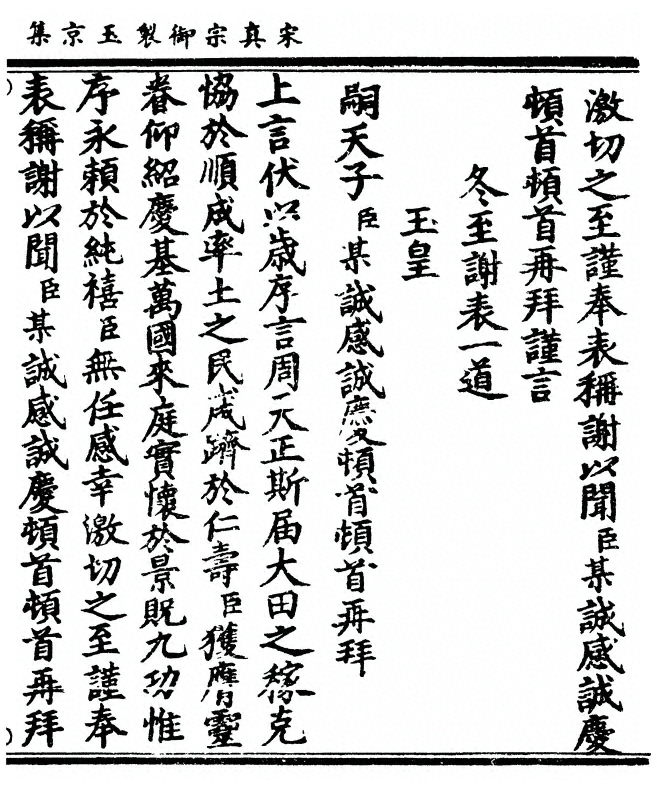 宋真宗御製玉京集
激切之至謹奉表稱謝以聞臣某誠感誠慶
頓首頓首再拜謹言
冬至謝表一道
玉皇
嗣天子臣某誠感誠慶頓首頓首再拜
上言伏以歲序言周天正斯届大田之稼克
恊於順成率土之民咸躋於仁壽臣獲膺靈
眷仰紹慶基萬國來庭實懷於景貺九功惟
序永賴於純禧臣無任感幸激切之至謹奉
表稱謝以聞臣某誠感誠慶頓首頓首再拜